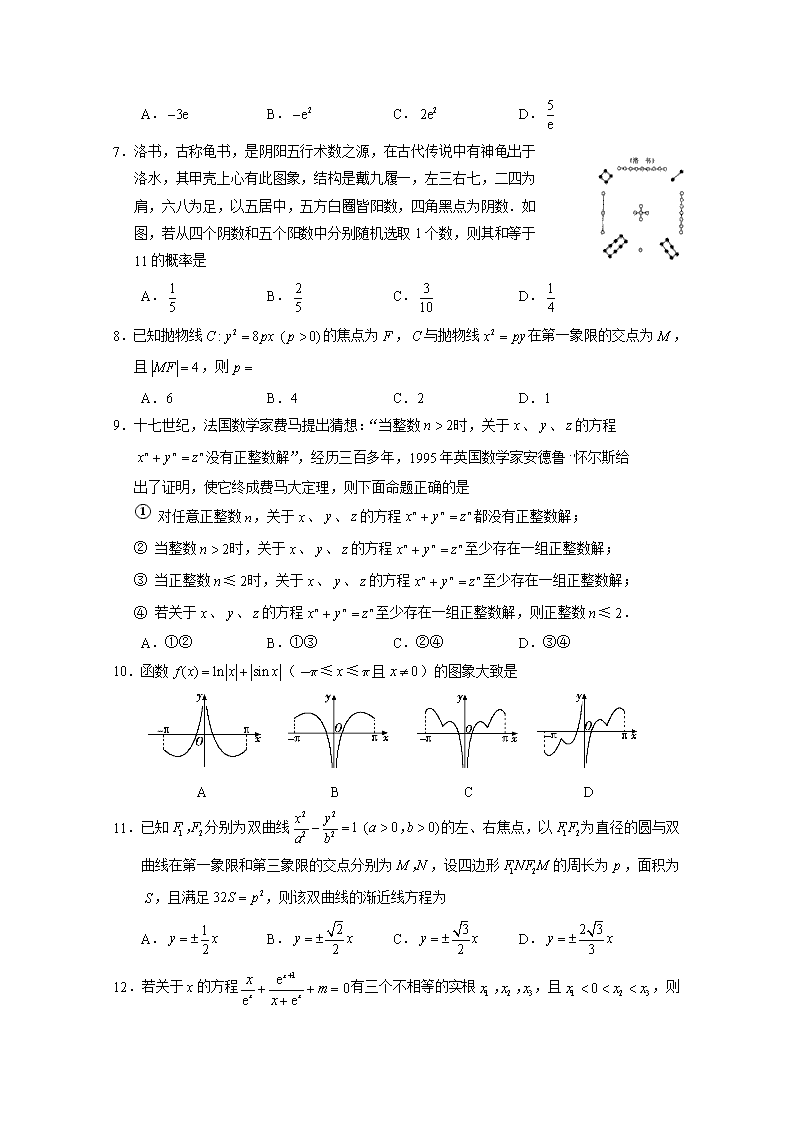 A. −3e B. −e² C. 2e² D. 5/e
7. 洛书，古称龟书，是阴阳五行术数之源，在古代传说中有神龟出于
洛水，其甲壳上心有此图象，结构是戴九履一，左三右七，二四为
肩，六八为足，以五居中，五方白圈皆阳数，四角黑点为阴数．如
图，若从四个阴数和五个阳数中分别随机选取 1 个数，则其和等于
11 的概率是
(洛 书)
A. 1/5 B. 2/5 C. 3/10 D. 1/4
8. 已知抛物线 C: y² = 8px (p > 0) 的焦点为 F，C 与抛物线 x² = py 在第一象限的交点为 M，
且 |MF| = 4，则 p =
A. 6 B. 4 C. 2 D. 1
9. 十七世纪，法国数学家费马提出猜想：“当整数 n > 2 时，关于 x、y、z 的方程
xⁿ + yⁿ = zⁿ 没有正整数解”，经历三百多年，1995 年英国数学家安德鲁·怀尔斯给
出了证明，使它终成费马大定理，则下面命题正确的是
① 对任意正整数 n，关于 x、y、z 的方程 xⁿ + yⁿ = zⁿ 都没有正整数解；
② 当整数 n > 2 时，关于 x、y、z 的方程 xⁿ + yⁿ = zⁿ 至少存在一组正整数解；
③ 当正整数 n ≤ 2 时，关于 x、y、z 的方程 xⁿ + yⁿ = zⁿ 至少存在一组正整数解；
④ 若关于 x、y、z 的方程 xⁿ + yⁿ = zⁿ 至少存在一组正整数解，则正整数 n ≤ 2．
A. ①② B. ①③ C. ②④ D. ③④
10. 函数 f(x) = ln|x| + |sin x|（−π ≤ x ≤ π 且 x ≠ 0）的图象大致是
y y y y
−π O π x −π O π x −π O π x −π O π x
A B C D
11. 已知 F₁,F₂ 分别为双曲线 x²/a² − y²/b² = 1 (a > 0,b > 0) 的左、右焦点，以 F₁F₂ 为直径的圆与双
曲线在第一象限和第三象限的交点分别为 M,N，设四边形 F₁NF₂M 的周长为 p，面积为
S，且满足 32S = p²，则该双曲线的渐近线方程为
A. y = ±1/2 x B. y = ±√2/2 x C. y = ±√3/2 x D. y = ±2√3/3 x
12. 若关于 x 的方程 x/eˣ + eˣ⁺¹/(x + eˣ) + m = 0 有三个不相等的实根 x₁,x₂,x₃，且 x₁ < 0 < x₂ < x₃，则